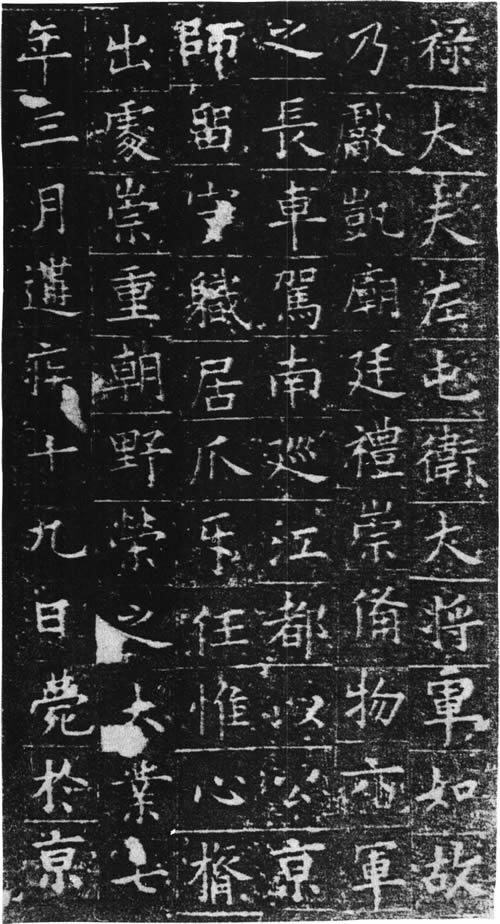 祿大夫左屯衛大將軍如故
乃獻凱廟廷禮崇備物軍
之長車駕南巡江都以公京
師留守職居爪牙任惟心膂
出處崇重朝野榮之大業七
年三月遘疾十九日薨於京